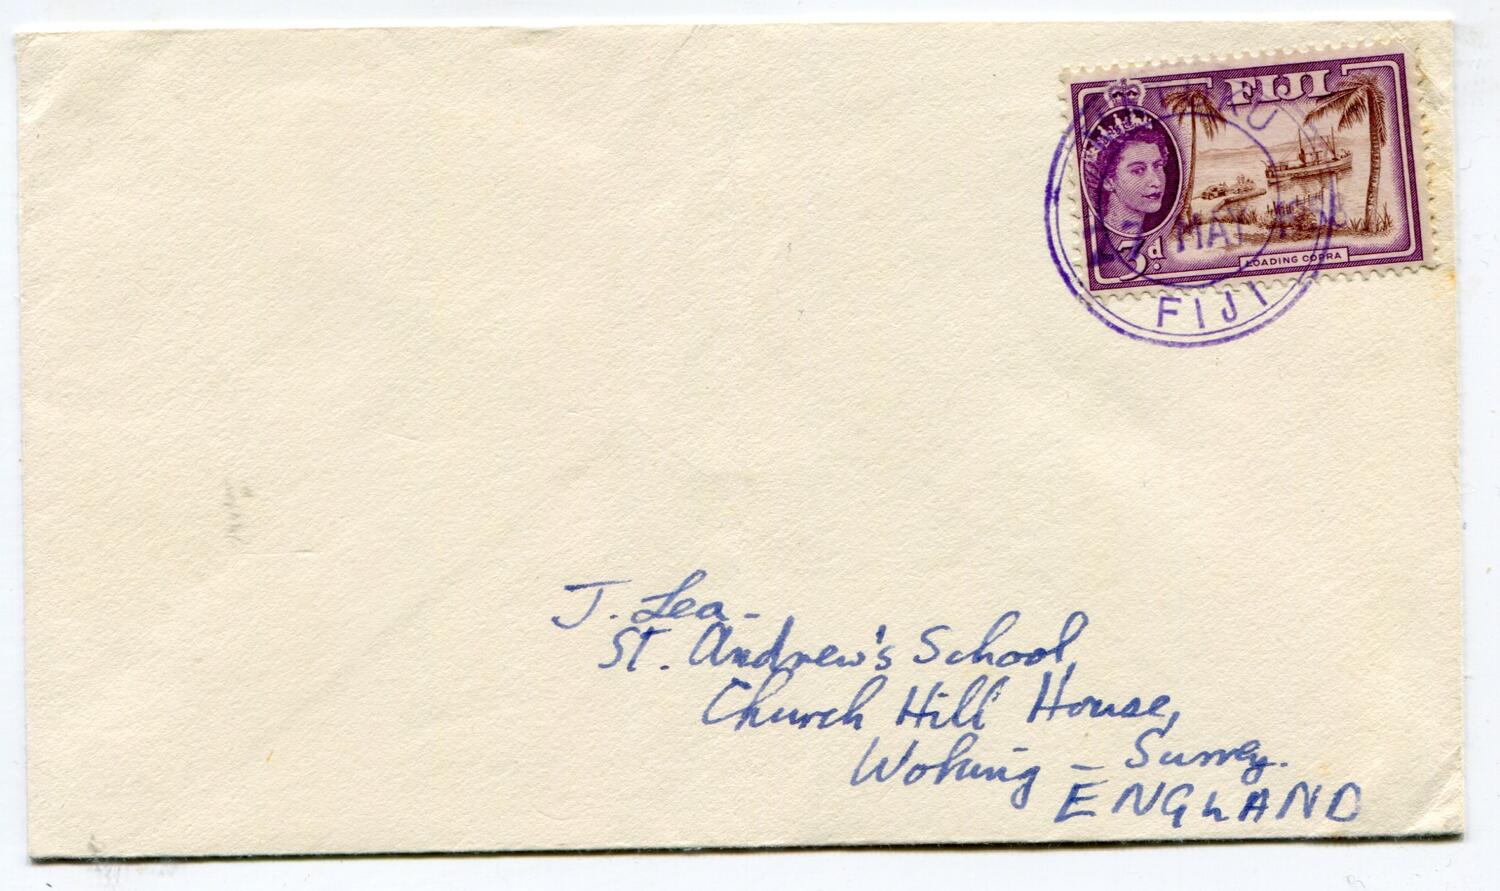 FIJI
3d.
LOADING COPRA
MAY
FIJI
J. Lea -
St. Andrew's School,
Church Hill House,
Woking - Surrey.
ENGLAND